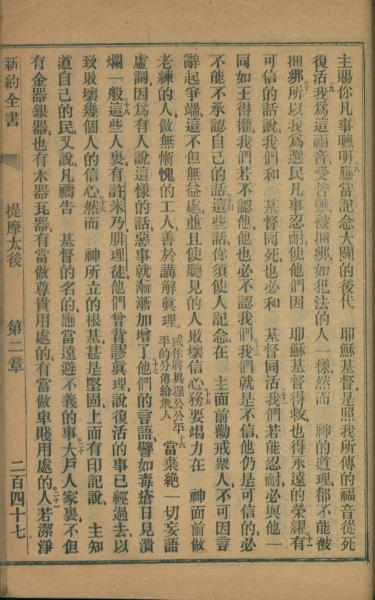 主賜你凡事聰明應當記念大闢的後代　耶穌基督是照我所傳的福音從死
復活我爲這福音受苦難被捆綁如犯法的人一樣然而　神的道理卻不能被
捆綁所以我爲選民凡事忍耐使他們因　耶穌基督得救也得永遠的榮耀有
可信的話說我們和　基督同死也必和　基督同活我們若能忍耐必與他一
同如王得權我們若不認他他也必不認我們我們就是不信他仍是可信的必
不能不承認自己的話這些話你須使人記念在　主面前勸戒衆人不可因言
辭起爭端這不但無益處並且使聽見的人敗壞信心務要竭力在　神面前做
老練的人做無慚愧的工人善於講解眞理或作將眞理公公平平的分傳給衆人當棄絶一切妄語
虛詞因爲有人說這樣的話惡事就漸漸加增了他們的言語譬如毒瘡日見潰
爛一般這些人裏有許米乃腓理徒他們曾背謬眞理說復活的事已經過去以
致敗壞幾個人的信心然而　神所立的根基甚是堅固上面有印記說　主知
道自己的民又說凡禱告　基督的名的應當遠避不義的事大戶人家裏不但
有金器銀器也有木器瓦器有當做尊貴用處的有當做卑賤用處的人若潔淨
新約全書　提摩太後　第二章　二百四十七